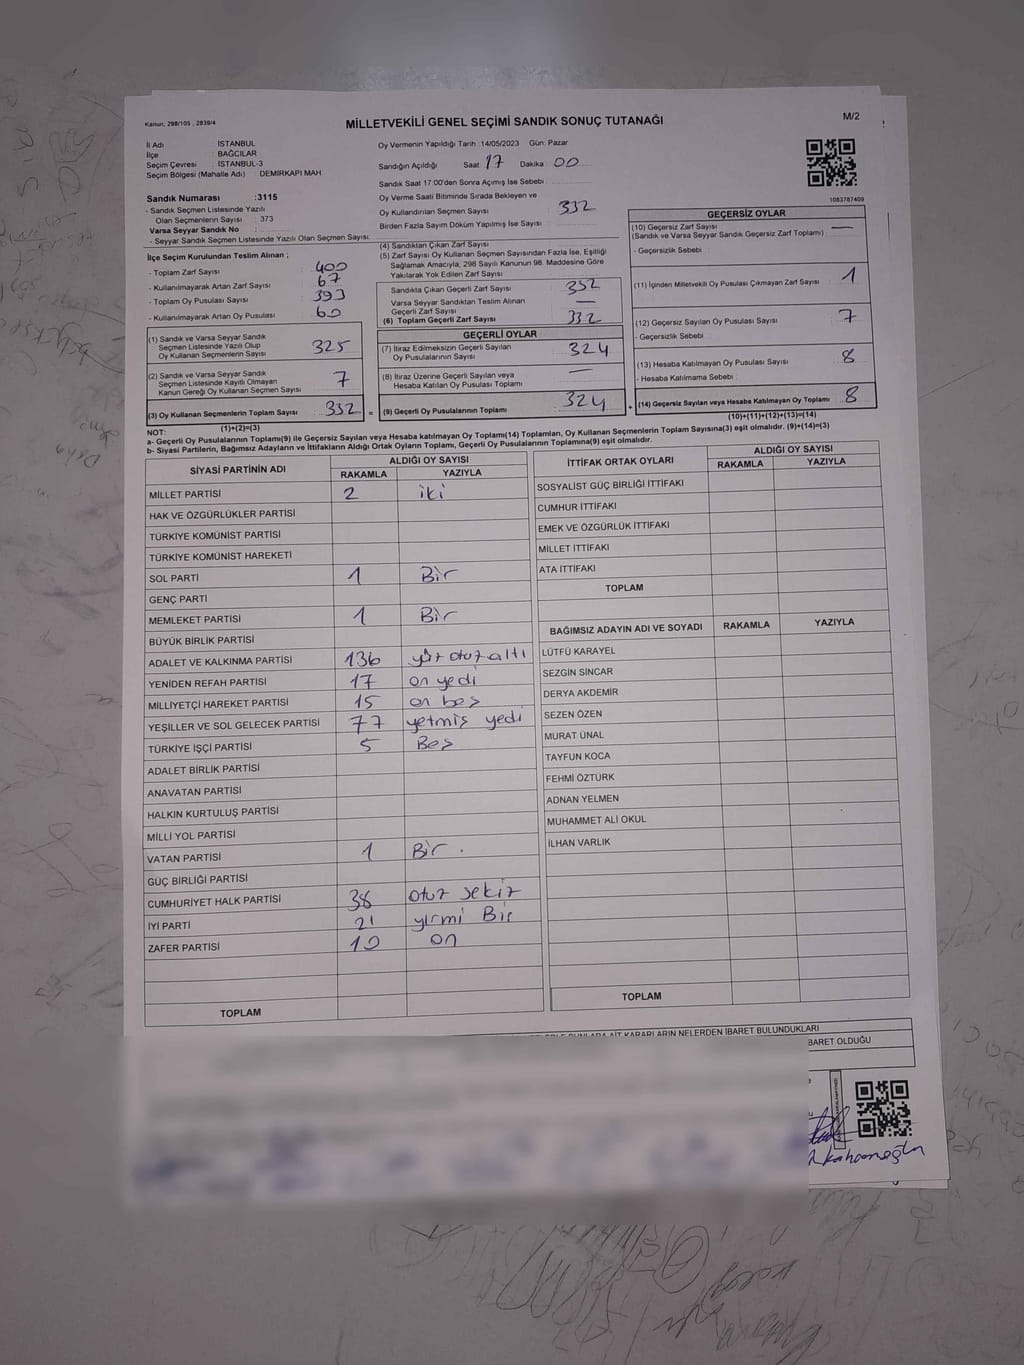 Kanun: 298/105 , 2839/4
MİLLETVEKİLİ GENEL SEÇİMİ SANDIK SONUÇ TUTANAĞI
M/2
İl Adı İSTANBUL
İlçe BAĞCILAR
Seçim Çevresi İSTANBUL-3
Seçim Bölgesi (Mahalle Adı) DEMİRKAPI MAH.
Sandık Numarası :3115
- Sandık Seçmen Listesinde Yazılı
Olan Seçmenlerin Sayısı : 373
Varsa Seyyar Sandık No :
- Seyyar Sandık Seçmen Listesinde Yazılı Olan Seçmen Sayısı:
Oy Vermenin Yapıldığı Tarih :14/05/2023 Gün: Pazar
Sandığın Açıldığı Saat: 17 Dakika 00
Sandık Saat 17:00'den Sonra Açımış İse Sebebi :
Oy Verme Saati Bitiminde Sırada Bekleyen ve
Oy Kullandırılan Seçmen Sayısı : 332
Birden Fazla Sayım Döküm Yapılmış İse Sayısı :
1083787409
İlçe Seçim Kurulundan Teslim Alınan ;
- Toplam Zarf Sayısı : 400
- Kullanılmayarak Artan Zarf Sayısı : 67
- Toplam Oy Pusulası Sayısı : 393
- Kullanılmayarak Artan Oy Pusulası : 60
(1) Sandık ve Varsa Seyyar Sandık
Seçmen Listesinde Yazılı Olup
Oy Kullanan Seçmenlerin Sayısı 325
(2) Sandık ve Varsa Seyyar Sandık
Seçmen Listesinde Kayıtlı Olmayan
Kanun Gereği Oy Kullanan Seçmen Sayısı 7
(3) Oy Kullanan Seçmenlerin Toplam Sayısı 332 =
(4) Sandıktan Çıkan Zarf Sayısı
(5) Zarf Sayısı Oy Kullanan Seçmen Sayısından Fazla İse, Eşitliği
Sağlamak Amacıyla, 298 Sayılı Kanunun 98. Maddesine Göre
Yakılarak Yok Edilen Zarf Sayısı
Sandıkta Çıkan Geçerli Zarf Sayısı 332
Varsa Seyyar Sandıktan Teslim Alınan
Geçerli Zarf Sayısı —
(6) Toplam Geçerli Zarf Sayısı 332
GEÇERLİ OYLAR
(7) İtiraz Edilmeksizin Geçerli Sayılan
Oy Pusulalarının Sayısı 324
(8) İtiraz Üzerine Geçerli Sayılan veya
Hesaba Katılan Oy Pusulası Toplamı —
(9) Geçerli Oy Pusulalarının Toplamı 324 +
GEÇERSİZ OYLAR
(10) Geçersiz Zarf Sayısı
(Sandık ve Varsa Seyyar Sandık Geçersiz Zarf Toplamı) —
- Geçersizlik Sebebi :
(11) İçinden Milletvekili Oy Pusulası Çıkmayan Zarf Sayısı : 1
(12) Geçersiz Sayılan Oy Pusulası Sayısı : 7
- Geçersizlik Sebebi :
(13) Hesaba Katılmayan Oy Pusulası Sayısı : 8
- Hesaba Katılmama Sebebi :
(14) Geçersiz Sayılan veya Hesaba Katılmayan Oy Toplamı 8
(1)+(2)=(3)
(10)+(11)+(12)+(13)=(14)
NOT:
a- Geçerli Oy Pusulalarının Toplamı(9) ile Geçersiz Sayılan veya Hesaba katılmayan Oy Toplamı(14) Toplamları, Oy Kullanan Seçmenlerin Toplam Sayısına(3) eşit olmalıdır. (9)+(14)=(3)
b- Siyasi Partilerin, Bağımsız Adayların ve İttifakların Aldığı Ortak Oyların Toplamı, Geçerli Oy Pusulalarının Toplamına(9) eşit olmalıdır.
SİYASİ PARTİNİN ADI ALDIĞI OY SAYISI
RAKAMLA YAZIYLA
MİLLET PARTİSİ 2 iki
HAK VE ÖZGÜRLÜKLER PARTİSİ
TÜRKİYE KOMÜNİST PARTİSİ
TÜRKİYE KOMÜNİST HAREKETİ
SOL PARTİ 1 Bir
GENÇ PARTİ
MEMLEKET PARTİSİ 1 Bir
BÜYÜK BİRLİK PARTİSİ
ADALET VE KALKINMA PARTİSİ 136 yüz otuz altı
YENİDEN REFAH PARTİSİ 17 on yedi
MİLLİYETÇİ HAREKET PARTİSİ 15 on beş
YEŞİLLER VE SOL GELECEK PARTİSİ 77 yetmiş yedi
TÜRKİYE İŞÇİ PARTİSİ 5 Beş
ADALET BİRLİK PARTİSİ
ANAVATAN PARTİSİ
HALKIN KURTULUŞ PARTİSİ
MİLLİ YOL PARTİSİ
VATAN PARTİSİ 1 Bir .
GÜÇ BİRLİĞİ PARTİSİ
CUMHURİYET HALK PARTİSİ 38 otuz sekiz
İYİ PARTİ 21 yirmi Bir
ZAFER PARTİSİ 10 on
TOPLAM
İTTİFAK ORTAK OYLARI ALDIĞI OY SAYISI
RAKAMLA YAZIYLA
SOSYALİST GÜÇ BİRLİĞİ İTTİFAKI
CUMHUR İTTİFAKI
EMEK VE ÖZGÜRLÜK İTTİFAKI
MİLLET İTTİFAKI
ATA İTTİFAKI
TOPLAM
BAĞIMSIZ ADAYIN ADI VE SOYADI RAKAMLA YAZIYLA
LÜTFÜ KARAYEL
SEZGİN SİNCAR
DERYA AKDEMİR
SEZEN ÖZEN
MURAT ÜNAL
TAYFUN KOCA
FEHMİ ÖZTÜRK
ADNAN YELMEN
MUHAMMET ALİ OKUL
İLHAN VARLIK
TOPLAM
AİT KARARLARIN NELERDEN İBARET BULUNDUKLARI
BARET OLDUĞU